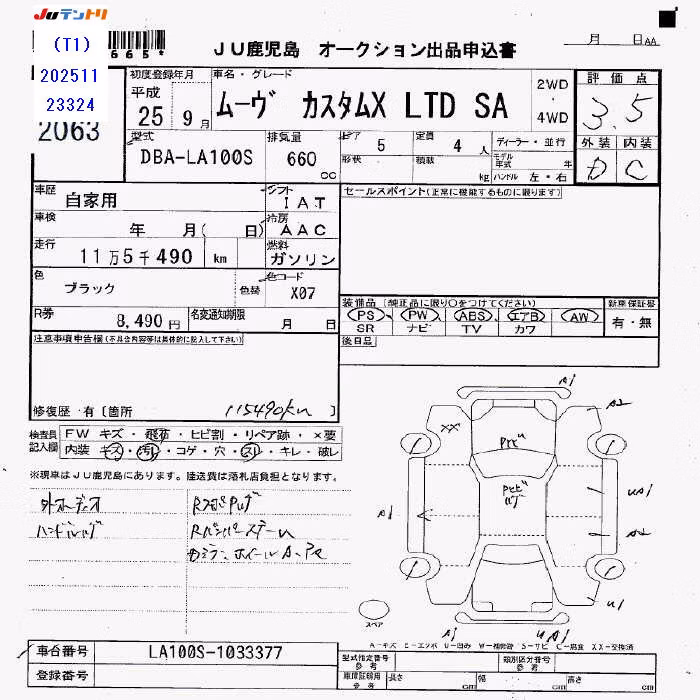 JUテントリ
(T1)
202511
23324
665*
2063
JU鹿児島 オークション出品申込書
月 日AA
初度登録年月
平成
25 9月
車名・グレード
ムーヴ カスタムX LTD SA
2WD
・
4WD
評価点
3.5
外装 内装
D C
型式
DBA-LA100S
排気量
660
cc
ドア 5
形状
定員 4 人
積載 kg
ディーラー・並行
モデル年式 年
ハンドル 左・右
車歴 自家用
シフト IAT
車検 年 月( 日)
冷房 AAC
走行 11万5千490 km
燃料 ガソリン
色 ブラック
色替
色コード X07
R券 8,490円
名変通知期限 月 日
セールスポイント(正常に機能するものに限ります)
装備品(純正品に限り〇をつけてください)
PS PW ABS エアB AW
SR ナビ TV カワ
新車保証書
有・無
後日品
注意事項申告欄(不具合内容等は具体的に記入して下さい)
修復歴・有〔箇所 115490km 〕
検査員記入欄
FW キズ・飛石・ヒビ割・リペア跡・×要
内装 キズ・汚れ・コゲ・穴・スレ・キレ・破レ
※現車はJU鹿児島にあります。陸送費は落札店負担となります。
外オーディオ
A1
A2
XX
UA1
A2
A1
U1
A1
U1
スペア
A-キズ E-エクボ U-凹み W-補修跡 S-サビ C-腐食 XX-交換済
車台番号 LA100S-1033377
登録番号
型式指定番号
類別区分番号
車庫証明用参考
長さ cm
幅 cm
高さ cm